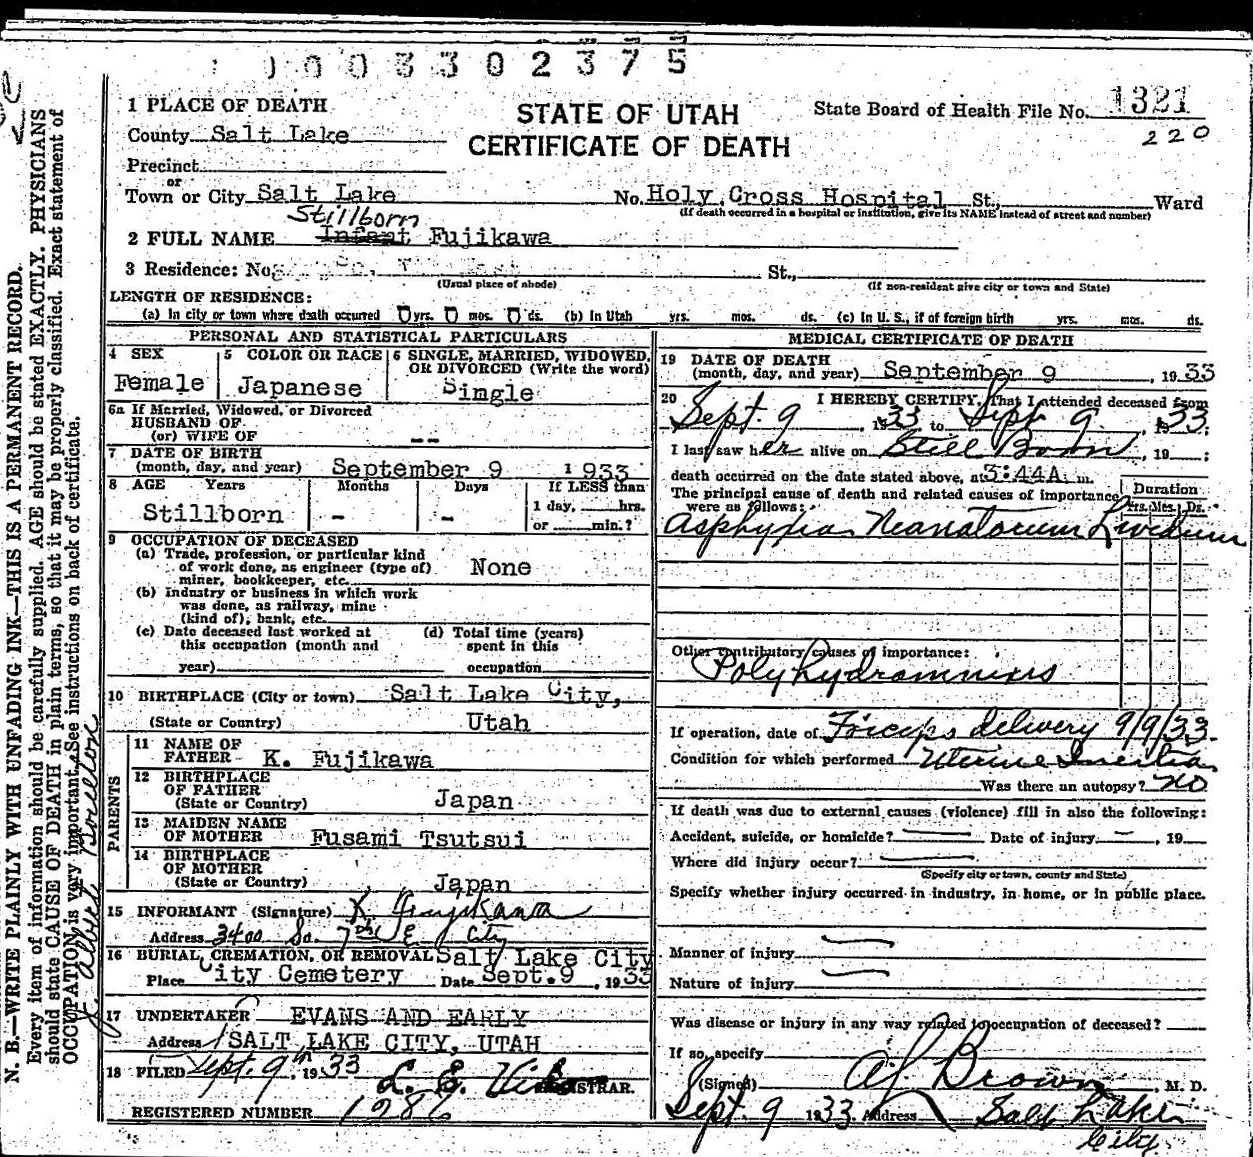 1003302375
STATE OF UTAH
CERTIFICATE OF DEATH
State Board of Health File No. 1321
220
1 PLACE OF DEATH
County Salt Lake
Precinct
or
Town or City Salt Lake No. Holy Cross Hospital St., Ward
(If death occurred in a hospital or institution, give its NAME instead of street and number)
Stillborn
2 FULL NAME Infant Fujikawa
3 Residence: No. St.,
(Usual place of abode) (If non-resident give city or town and State)
LENGTH OF RESIDENCE:
(a) In city or town where death occurred 0 yrs. 0 mos. 0 ds. (b) In Utah yrs. mos. ds. (c) In U. S., if of foreign birth yrs. mos. ds.
PERSONAL AND STATISTICAL PARTICULARS
4 SEX Female
5 COLOR OR RACE Japanese
6 SINGLE, MARRIED, WIDOWED, OR DIVORCED (Write the word) Single
6a If Married, Widowed, or Divorced
HUSBAND OF
(or) WIFE OF --
7 DATE OF BIRTH
(month, day, and year) September 9 1933
8 AGE Years Months Days If LESS than
1 day, hrs.
Stillborn - - or min.?
9 OCCUPATION OF DECEASED
(a) Trade, profession, or particular kind
of work done, as engineer (type of)
miner, bookkeeper, etc. None
(b) Industry or business in which work
was done, as railway, mine
(kind of), bank, etc.
(c) Date deceased last worked at
this occupation (month and
year)
(d) Total time (years)
spent in this
occupation
10 BIRTHPLACE (City or town) Salt Lake City,
(State or Country) Utah
PARENTS
11 NAME OF
FATHER K. Fujikawa
12 BIRTHPLACE
OF FATHER
(State or Country) Japan
13 MAIDEN NAME
OF MOTHER Fusami Tsutsui
14 BIRTHPLACE
OF MOTHER
(State or Country) Japan
15 INFORMANT (Signature) K. Fujikawa
Address 3400 So. 7th E City
16 BURIAL, CREMATION, OR REMOVAL Salt Lake City
Place City Cemetery Date Sept. 9, 1933
17 UNDERTAKER EVANS AND EARLY
Address SALT LAKE CITY, UTAH
18 FILED Sept. 9th, 1933
REGISTRAR.
REGISTERED NUMBER 1286
MEDICAL CERTIFICATE OF DEATH
19 DATE OF DEATH
(month, day, and year) September 9, 1933
20 I HEREBY CERTIFY, That I attended deceased from
Sept. 9, 1933 to Sept 9, 1933;
I last saw her alive on Still Born, 19 ;
death occurred on the date stated above, at 3:44A m.
The principal cause of death and related causes of importance
were as follows: Duration
Yrs. Mos. Ds.
Asphyxia Neanatorum Lividum
Other contributory causes of importance:
Polyhydramnius
If operation, date of Forceps delivery 9/9/33.
Condition for which performed Uterine Inertia
Was there an autopsy? No
If death was due to external causes (violence) fill in also the following:
Accident, suicide, or homicide? Date of injury , 19
Where did injury occur?
(Specify city or town, county and State)
Specify whether injury occurred in industry, in home, or in public place.
Manner of injury
Nature of injury
Was disease or injury in any way related to occupation of deceased?
If so, specify
(Signed) Brown, M. D.
Sept. 9 1933 Address Salt Lake
City
N. B.—WRITE PLAINLY WITH UNFADING INK—THIS IS A PERMANENT RECORD.
Every item of information should be carefully supplied. AGE should be stated EXACTLY. PHYSICIANS
should state CAUSE OF DEATH in plain terms, so that it may be properly classified. Exact statement of
OCCUPATION is very important. See instructions on back of certificate.